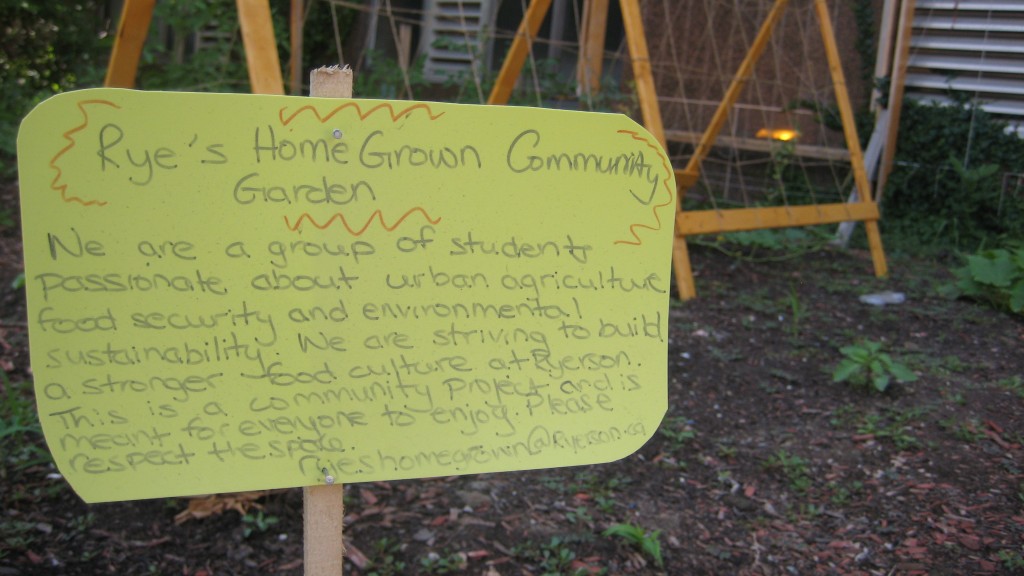 Rye's Home Grown Community
Garden
We are a group of students
passionate about urban agriculture
food security and environmental
sustainability. We are striving to build
a stronger food culture at Ryerson.
This is a community project and is
meant for everyone to enjoy. Please
respect the space.
ryeshomegrown@Ryerson.ca